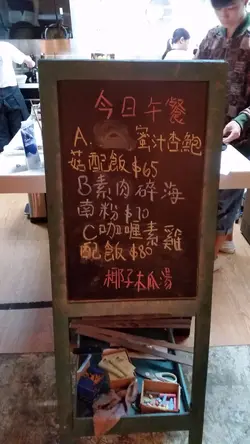 今日午餐
A. 蜜汁杏鮑
菇配飯$65
B素肉碎海
南粉$70
C咖喱素雞
配飯$80
椰子木瓜湯